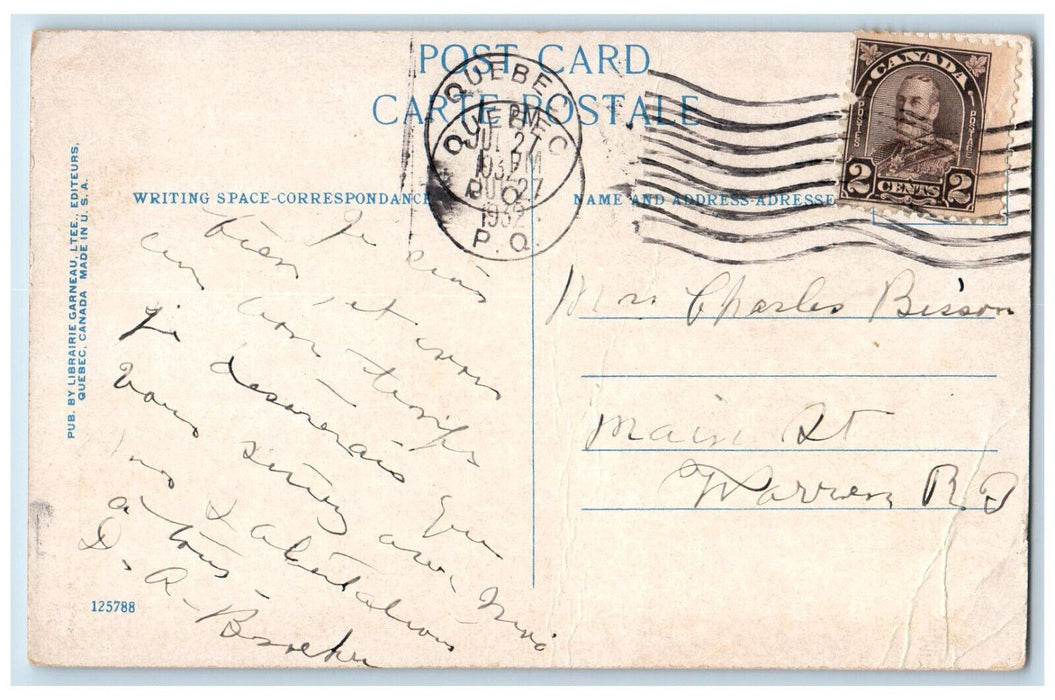 POST CARD
CARTE POSTALE
QUEBEC
JUL 27
1932
P. Q.
QUEBEC
PM
JUL 27
1932
P. Q.
CANADA
POSTES
POSTAGE
2 CENTS 2
WRITING SPACE-CORRESPONDANCE
NAME AND ADDRESS-ADRESSE
PUB. BY LIBRAIRIE GARNEAU, LTEE., EDITEURS,
QUEBEC, CANADA MADE IN U. S. A.
bien Je suis
un bon et
je desirerais temps
vous que
avec moi
a tous
D. A.
125788
Mrs Charles Bisson
Main St
Warren R I